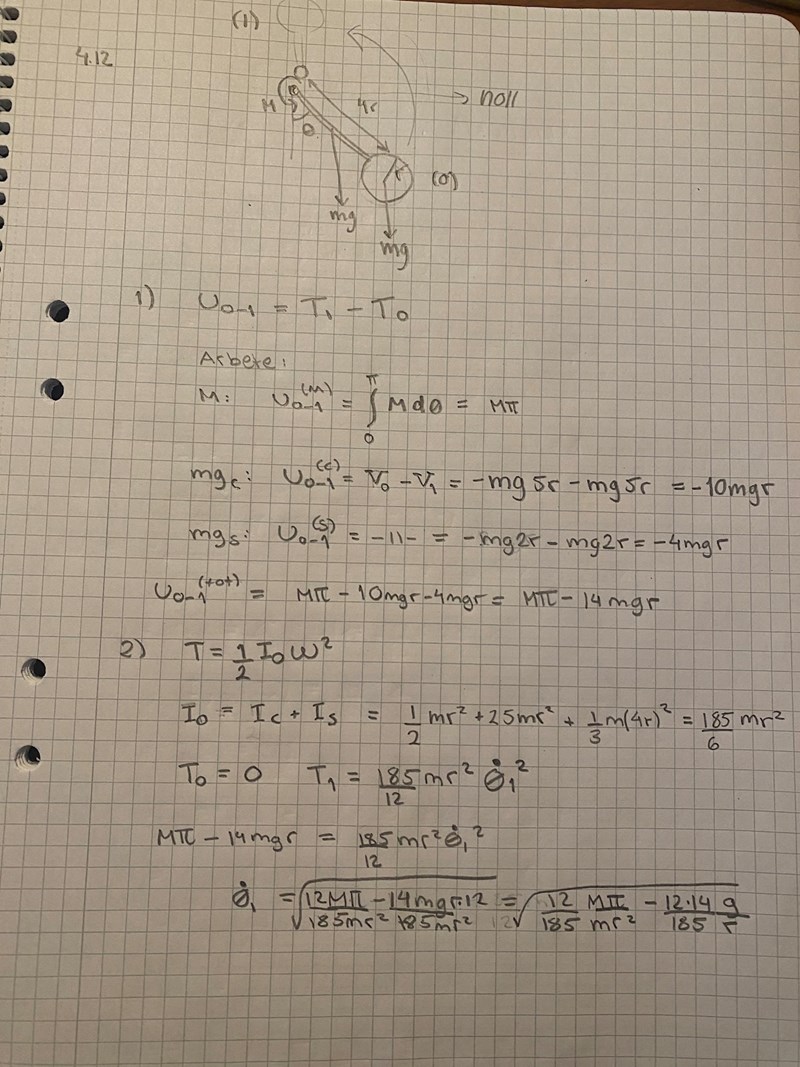 (1)
4.12
M
4r
→ noll
θ
r
(0)
mg
mg
1) U₀₋₁ = T₁ - T₀
Arbete:
M: U₀₋₁⁽ᴹ⁾ = ∫₀^π M dθ = Mπ
mg_c: U₀₋₁^(c) = V₀ - V₁ = -mg5r - mg5r = -10mgr
mg_s: U₀₋₁^(s) = -11- = -mg2r - mg2r = -4mgr
U₀₋₁^(tot) = Mπ - 10mgr - 4mgr = Mπ - 14mgr
2) T = 1/2 I₀ω²
I₀ = I_c + I_s = 1/2 mr² + 25mr² + 1/3 m(4r)² = 185/6 mr²
T₀ = 0 T₁ = 185/12 mr² θ̇₁²
Mπ - 14mgr = 185/12 mr² θ̇₁²
θ̇₁ = √(12Mπ/185mr² - 14mgr·12/185mr²) = √(12/185 Mπ/mr² - 12·14/185 g/r)